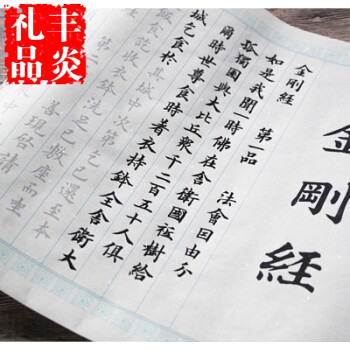 丰炎
礼品
金剛経
金剛経 第一品 法會因由分
如是我聞一時佛在舍衛國祗樹給
孤獨園與大比丘衆千二百五十人俱
爾時世尊食時着衣持鉢入舍衛大
城乞食於其城中次第乞已還至本
飯食訖收衣鉢洗足已敷座而坐
善現啟請